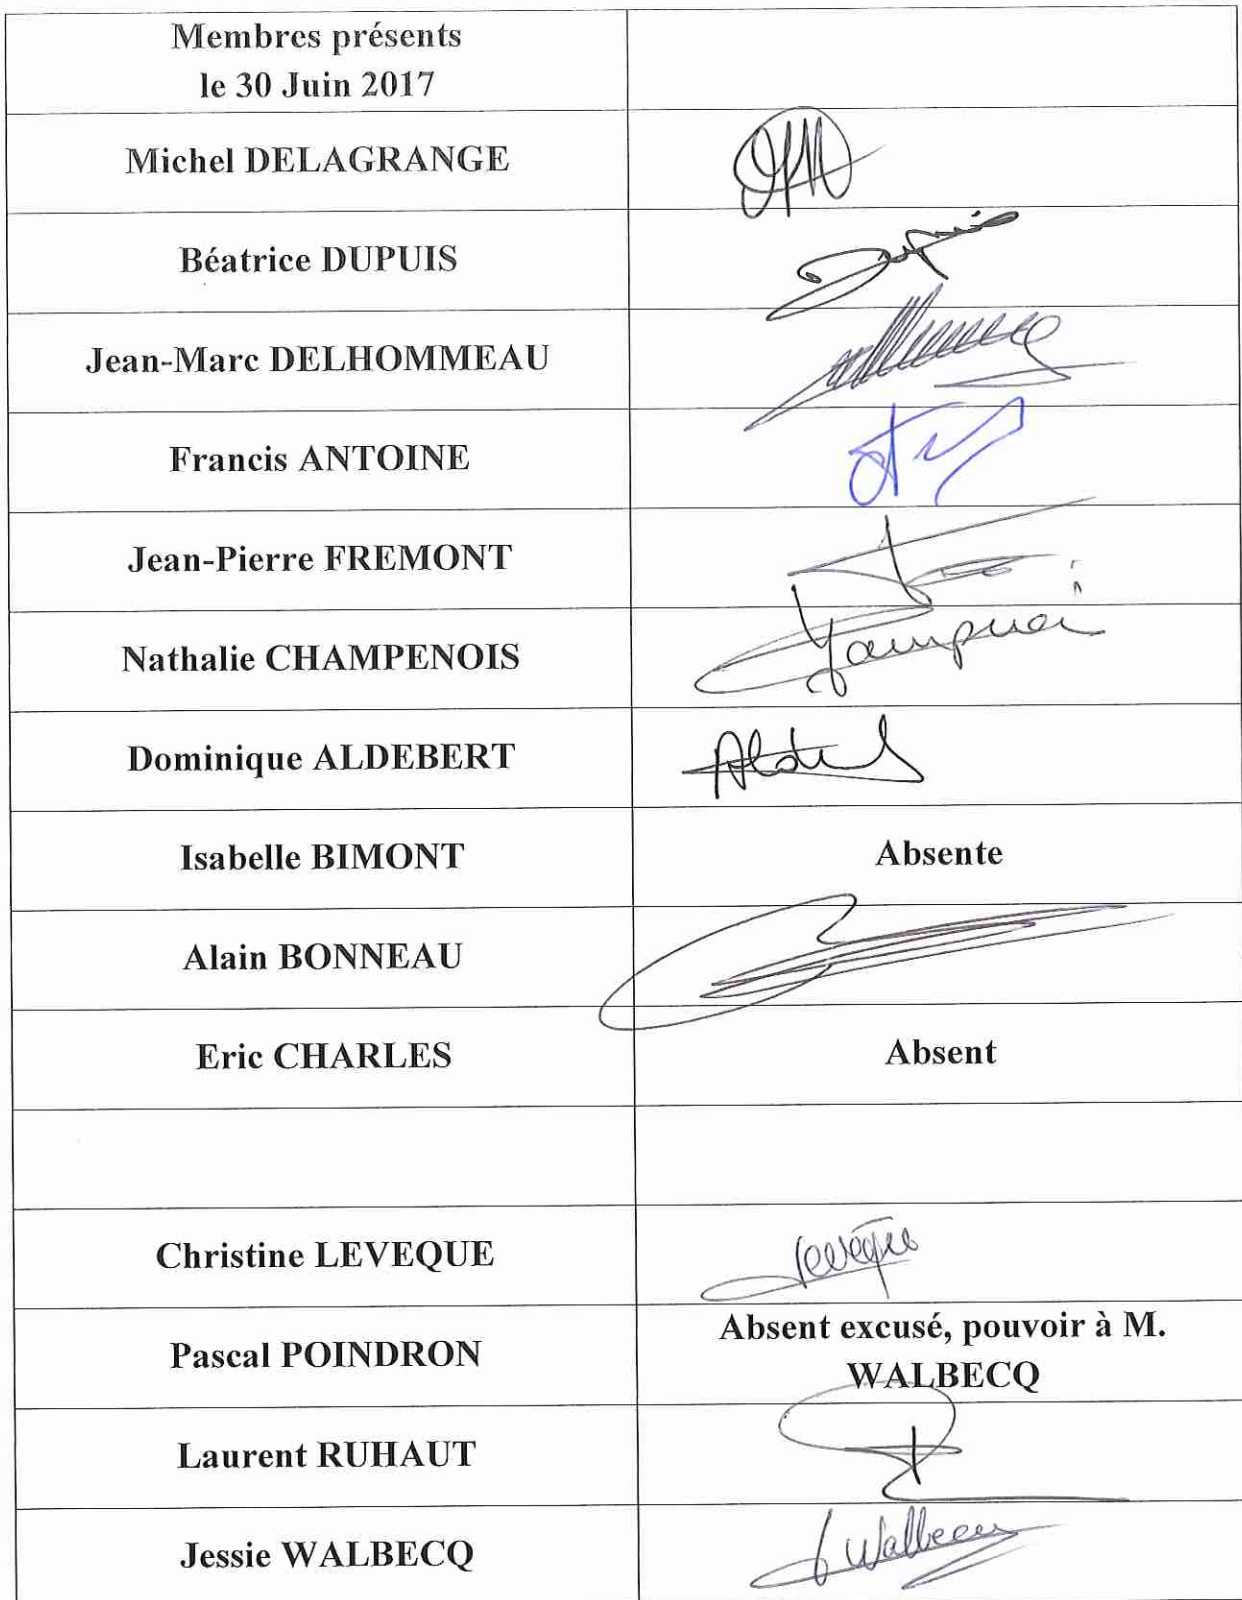 Membres présents
le 30 Juin 2017
Michel DELAGRANGE
Béatrice DUPUIS
Dupuis
Jean-Marc DELHOMMEAU
Francis ANTOINE
Jean-Pierre FREMONT
Nathalie CHAMPENOIS
Dominique ALDEBERT
Isabelle BIMONT
Absente
Alain BONNEAU
Eric CHARLES
Absent
Christine LEVEQUE
Levêque
Pascal POINDRON
Absent excusé, pouvoir à M.
WALBECQ
Laurent RUHAUT
Jessie WALBECQ
J Walbecq